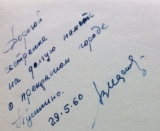 Дорогой
сестренке
на долгую память
о прекрасном городе
Пущино.
29.5.60